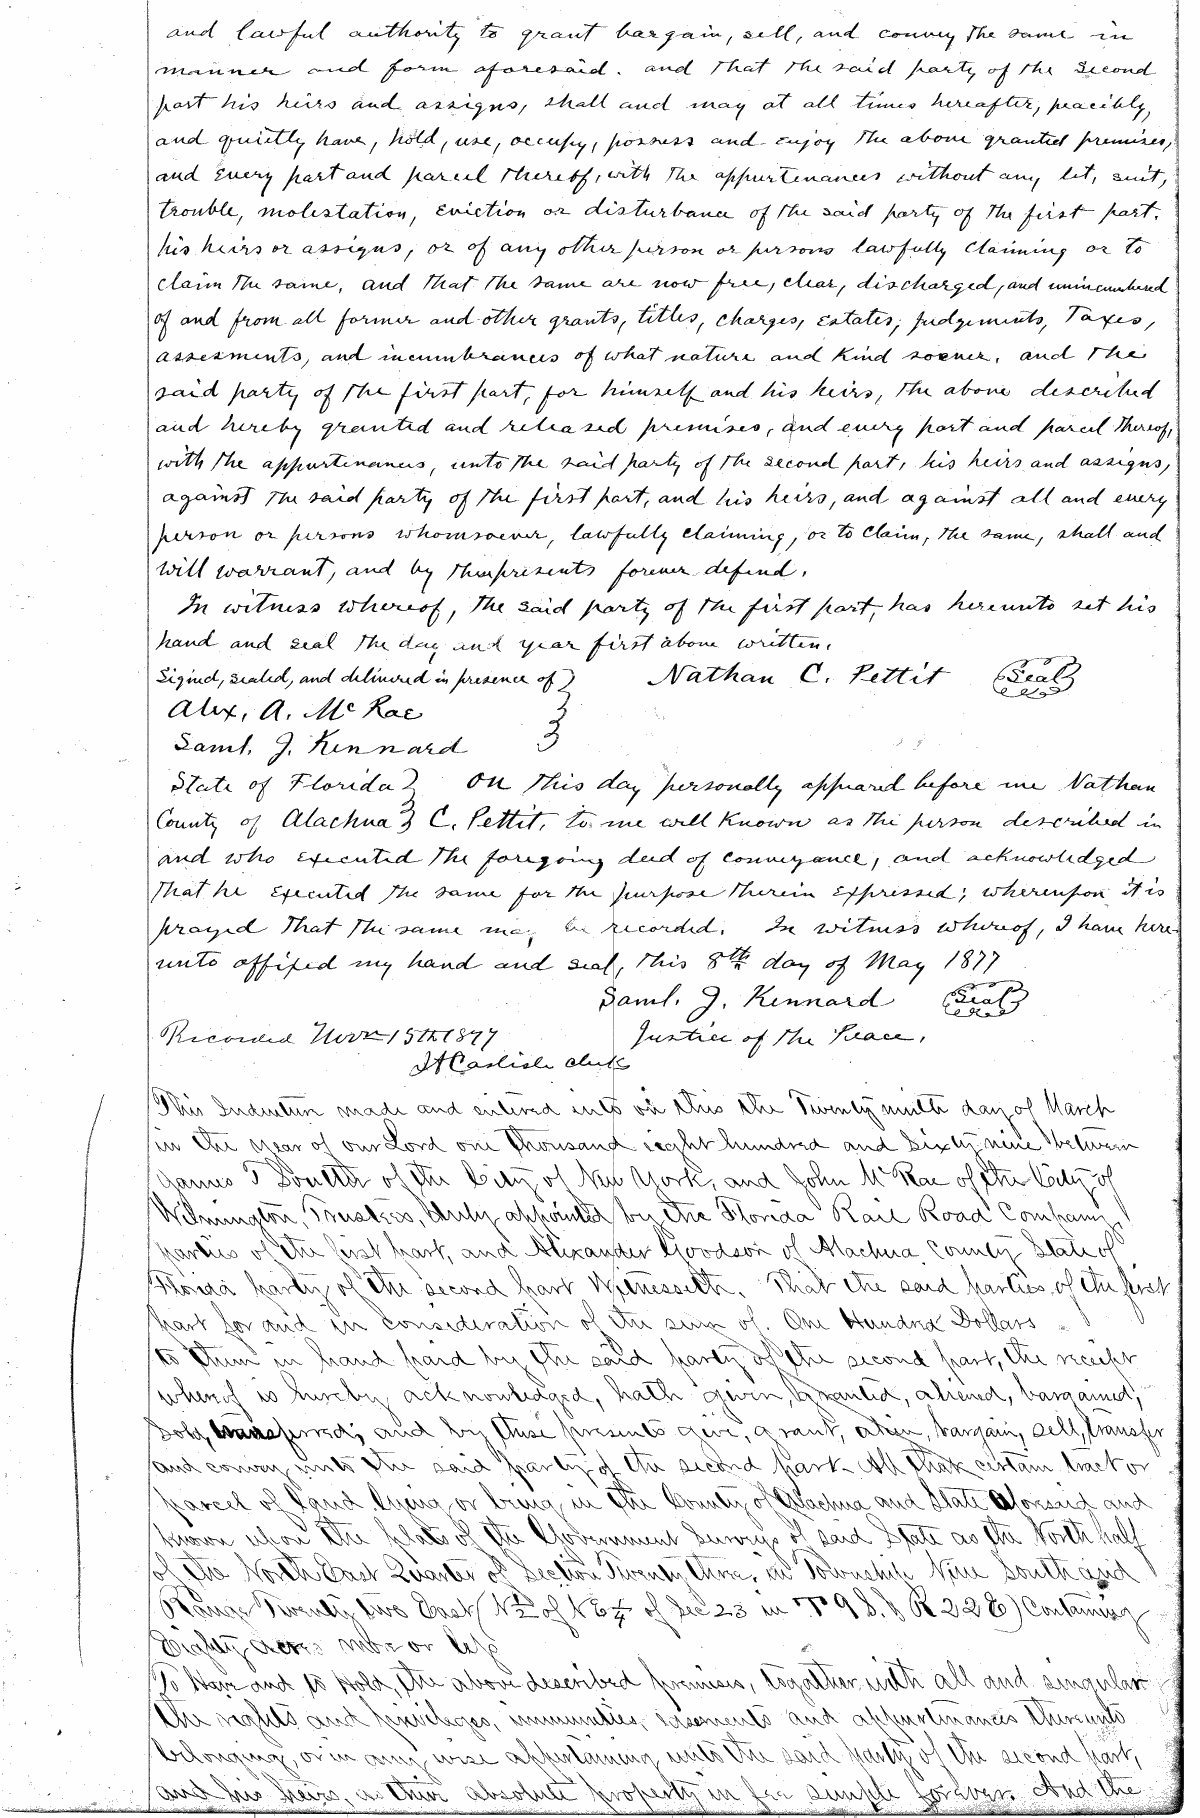 and lawful authority to grant bargain, sell, and convey the same in
manner and form aforesaid. and that the said party of the second
part his heirs and assigns, shall and may at all times hereafter, peacibly,
and quietly have, hold, use, occupy, possess and enjoy the above granted premises,
and every part and parcel thereof, with the appurtenances without any let, suit,
trouble, molestation, eviction or disturbance of the said party of the first part.
his heirs or assigns, or of any other person or persons lawfully claiming or to
claim the same, and that the same are now free, clear, discharged, and unincumbered
of and from all former and other grants, titles, charges, estates, judgements, Taxes,
assesments, and incumbrances of what nature and kind soever. and the
said party of the first part, for himself and his heirs, the above described
and hereby granted and released premises, and every part and parcel thereof,
with the appurtenances, unto the said party of the second part, his heirs and assigns,
against the said party of the first part, and his heirs, and against all and every
person or persons whomsoever, lawfully claiming, or to claim, the same, shall and
will warrant, and by these presents forever defend.
In witness whereof, the said party of the first part, has hereunto set his
hand and seal the day and year first above written.
Signed, sealed, and delivered in presence of } Nathan C. Pettit (Seal)
Alex. A. McRae
Saml. J. Kennard
State of Florida } On this day personally appeared before me Nathan
County of Alachua } C. Pettit, to me well known as the person described in
and who executed the foregoing deed of conveyance, and acknowledged
that he executed the same for the purpose therein expressed; whereupon it is
prayed that the same may be recorded. In witness whereof, I have here
unto affixed my hand and seal, this 8th day of May 1877
Saml. J. Kennard (Seal)
Recorded Novr 15th 1877 Justice of the Peace.
Carlisle clerk
This Indenture made and entered into on this the Twenty ninth day of March
in the year of our Lord one thousand eight hundred and Sixty nine between
James T Soutter of the City of New York, and John McRae of the City of
Wilmington, Trustees, duly appointed by the Florida Rail Road Company,
parties of the first part, and Alexander Goodson of Alachua County State of
Florida party of the second part Witnesseth. That the said parties of the first
part for and in consideration of the sum of. One Hundred Dollars
to them in hand paid by the said party of the second part, the receipt
whereof is hereby acknowledged, hath given, granted, aliened, bargained,
Sold, transferred; and by these presents give, grant, alien, bargain, sell, transfer
and convey unto the said party of the second part- All that certain tract or
parcel of land lying or being in the County of Alachua and State aforesaid and
known upon the plats of the Government Surveys of said State as the North half
of the North East Quarter of Section Twenty three, in Township Nine South and
Range Twenty two East (N½ of NE¼ of Sec 23 in T 9 S. & R 22 E) Containing
Eighty acres more or less
To Have and to Hold, the above described premises, together with all and singular
the rights and privileges, immunities, easements and appurtenances thereunto
belonging, or in any wise appertaining unto the said party of the second part,
and his heirs, as their absolute property in fee simple forever. And the